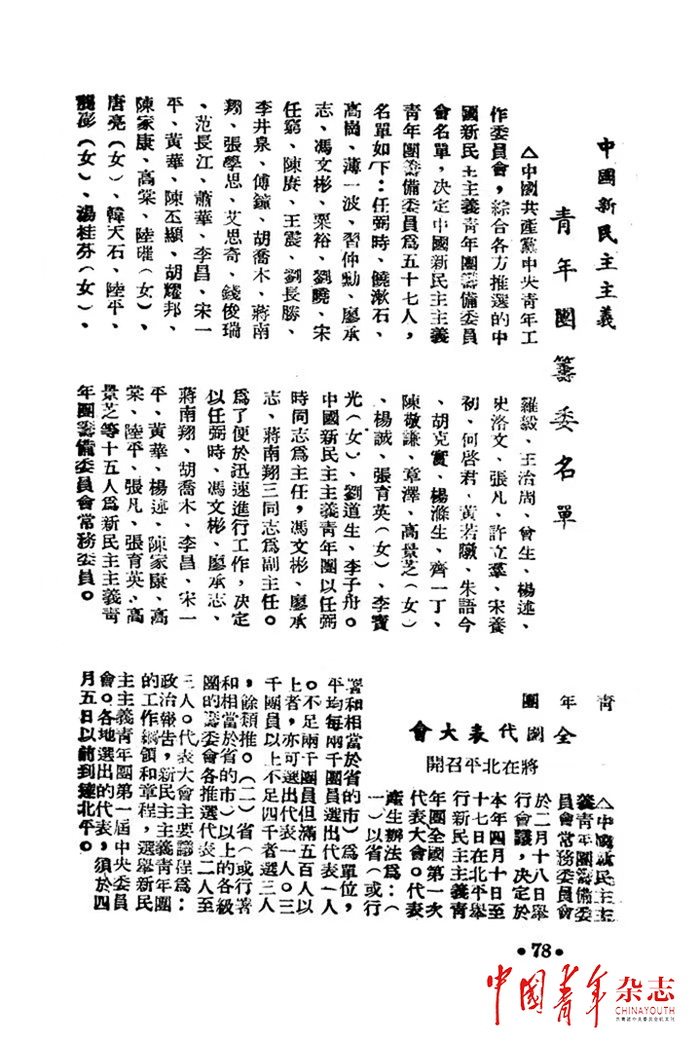 中國新民主主義
青年團籌委名單
△中國共產黨中央青年工
作委員會，綜合各方推選的中
國新民主主義青年團籌備委員
會名單，決定中國新民主主義
青年團籌備委員爲五十七人，
名單如下：任弼時、饒漱石、
高崗、薄一波、習仲勳、廖承
志、馮文彬、粟裕、劉曉、宋
任窮、陳賡、王震、劉長勝、
李井泉、傅鐘、胡喬木、蔣南
翔、張學思、艾思奇、錢俊瑞
、范長江、蕭華、李昌、宋一
平、黃華、陳丕顯、胡耀邦、
陳家康、高棠、陸璀（女）、
唐亮（女）、韓天石、陸平、
龔澎（女）、湯桂芬（女）、
羅毅、王治周、曾生、楊述、
史洛文、張凡、許立羣、宋養
初、何啓君、黃若暾、朱語今
、胡克實、楊滌生、齊一丁、
陳敬謙、章澤、高景芝（女）
、楊誠、張育英（女）、李寶
光（女）、劉道生、李子舟。
中國新民主主義青年團以任弼
時同志爲主任，馮文彬、廖承
志、蔣南翔三同志爲副主任。
爲了便於迅速進行工作，決定
以任弼時、馮文彬、廖承志、
蔣南翔、胡喬木、李昌、宋一
平、黃華、楊述、陳家康、高
棠、陸平、張凡、張育英、高
景芝等十五人爲新民主主義靑
年團籌備委員會常務委員。
靑年團
全國代表大會
將在北平召開
△中國新民主主
義青年團籌備委
員會常務委員會
於二月十八日舉
行會議，決定於
本年四月十日至
十七日在北平舉
行新民主主義靑
年團全國第一次
代表大會。代表
產生辦法爲：（
一）以省（或行
署和相當於省的市）爲單位，
平均每兩千團員選出代表一人
。不足兩千團員但滿五百人以
上者，亦可選出代表一人。三
千團員以上不足四千者選三人
，餘類推。（二）省（或行署
和相當於省的市）以上的各級
團的籌委會各推選代表二人至
三人。代表大會主要議程爲：
政治報告，新民主主義靑年團
的工作綱領和章程，選舉新民
主主義青年團第一屆中央委員
會。各地選出的代表，須於四
月五日以前到達北平。
•78•
中國青年杂志
CHINAYOUTH